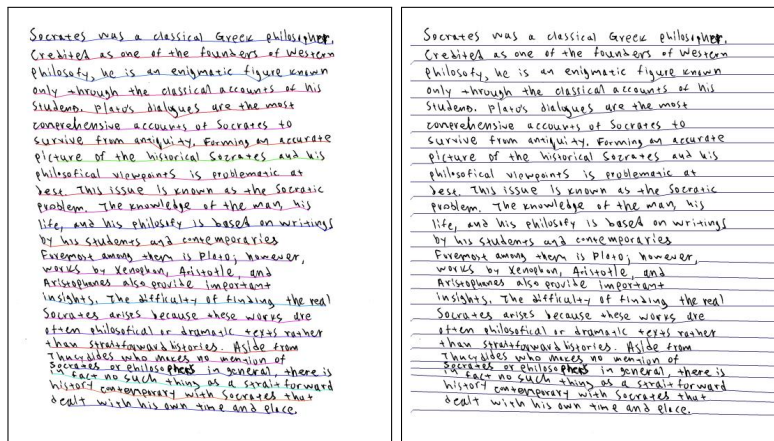 Socrates was a classical Greek philosopher.
Credited as one of the founders of Western
philosofy, he is an enigmatic figure known
only through the classical accounts of his
students. Plato's dialogues are the most
conprehensive accounts of Socrates to
survive from antiquity. Forming an accurate
picture of the historical Socrates and his
philosofical viewpoints is problematic at
best. This issue is known as the Socratic
problem. The knowledge of the man, his
life, and his philosofy is based on writings
by his students and contemporaries
Foremost among them is Plato; however,
works by Xenophon, Aristotle, and
Aristophanes also provide important
insights. The difficulty of finding the real
Socrates arises because these works are
often philosofical or dramatic texts rather
than straitforward histories. Aside from
Thucydides who makes no mention of
Socrates or philosophers in general, there is
in fact no such thing as a strait forward
history contemporary with Socrates that
dealt with his own time and place.
Socrates was a classical Greek philosopher.
Credited as one of the founders of Western
philosofy, he is an enigmatic figure known
only through the classical accounts of his
students. Plato's dialogues are the most
conprehensive accounts of Socrates to
survive from antiquity. Forming an accurate
picture of the historical Socrates and his
philosofical viewpoints is problematic at
best. This issue is known as the Socratic
problem. The knowledge of the man, his
life, and his philosofy is based on writings
by his students and contemporaries
Foremost among them is Plato; however,
works by Xenophon, Aristotle, and
Aristophanes also provide important
insights. The difficulty of finding the real
Socrates arises because these works are
often philosofical or dramatic texts rather
than straitforward histories. Aside from
Thucydides who makes no mention of
Socrates or philosophers in general, there is
in fact no such thing as a strait forward
history contemporary with Socrates that
dealt with his own time and place.